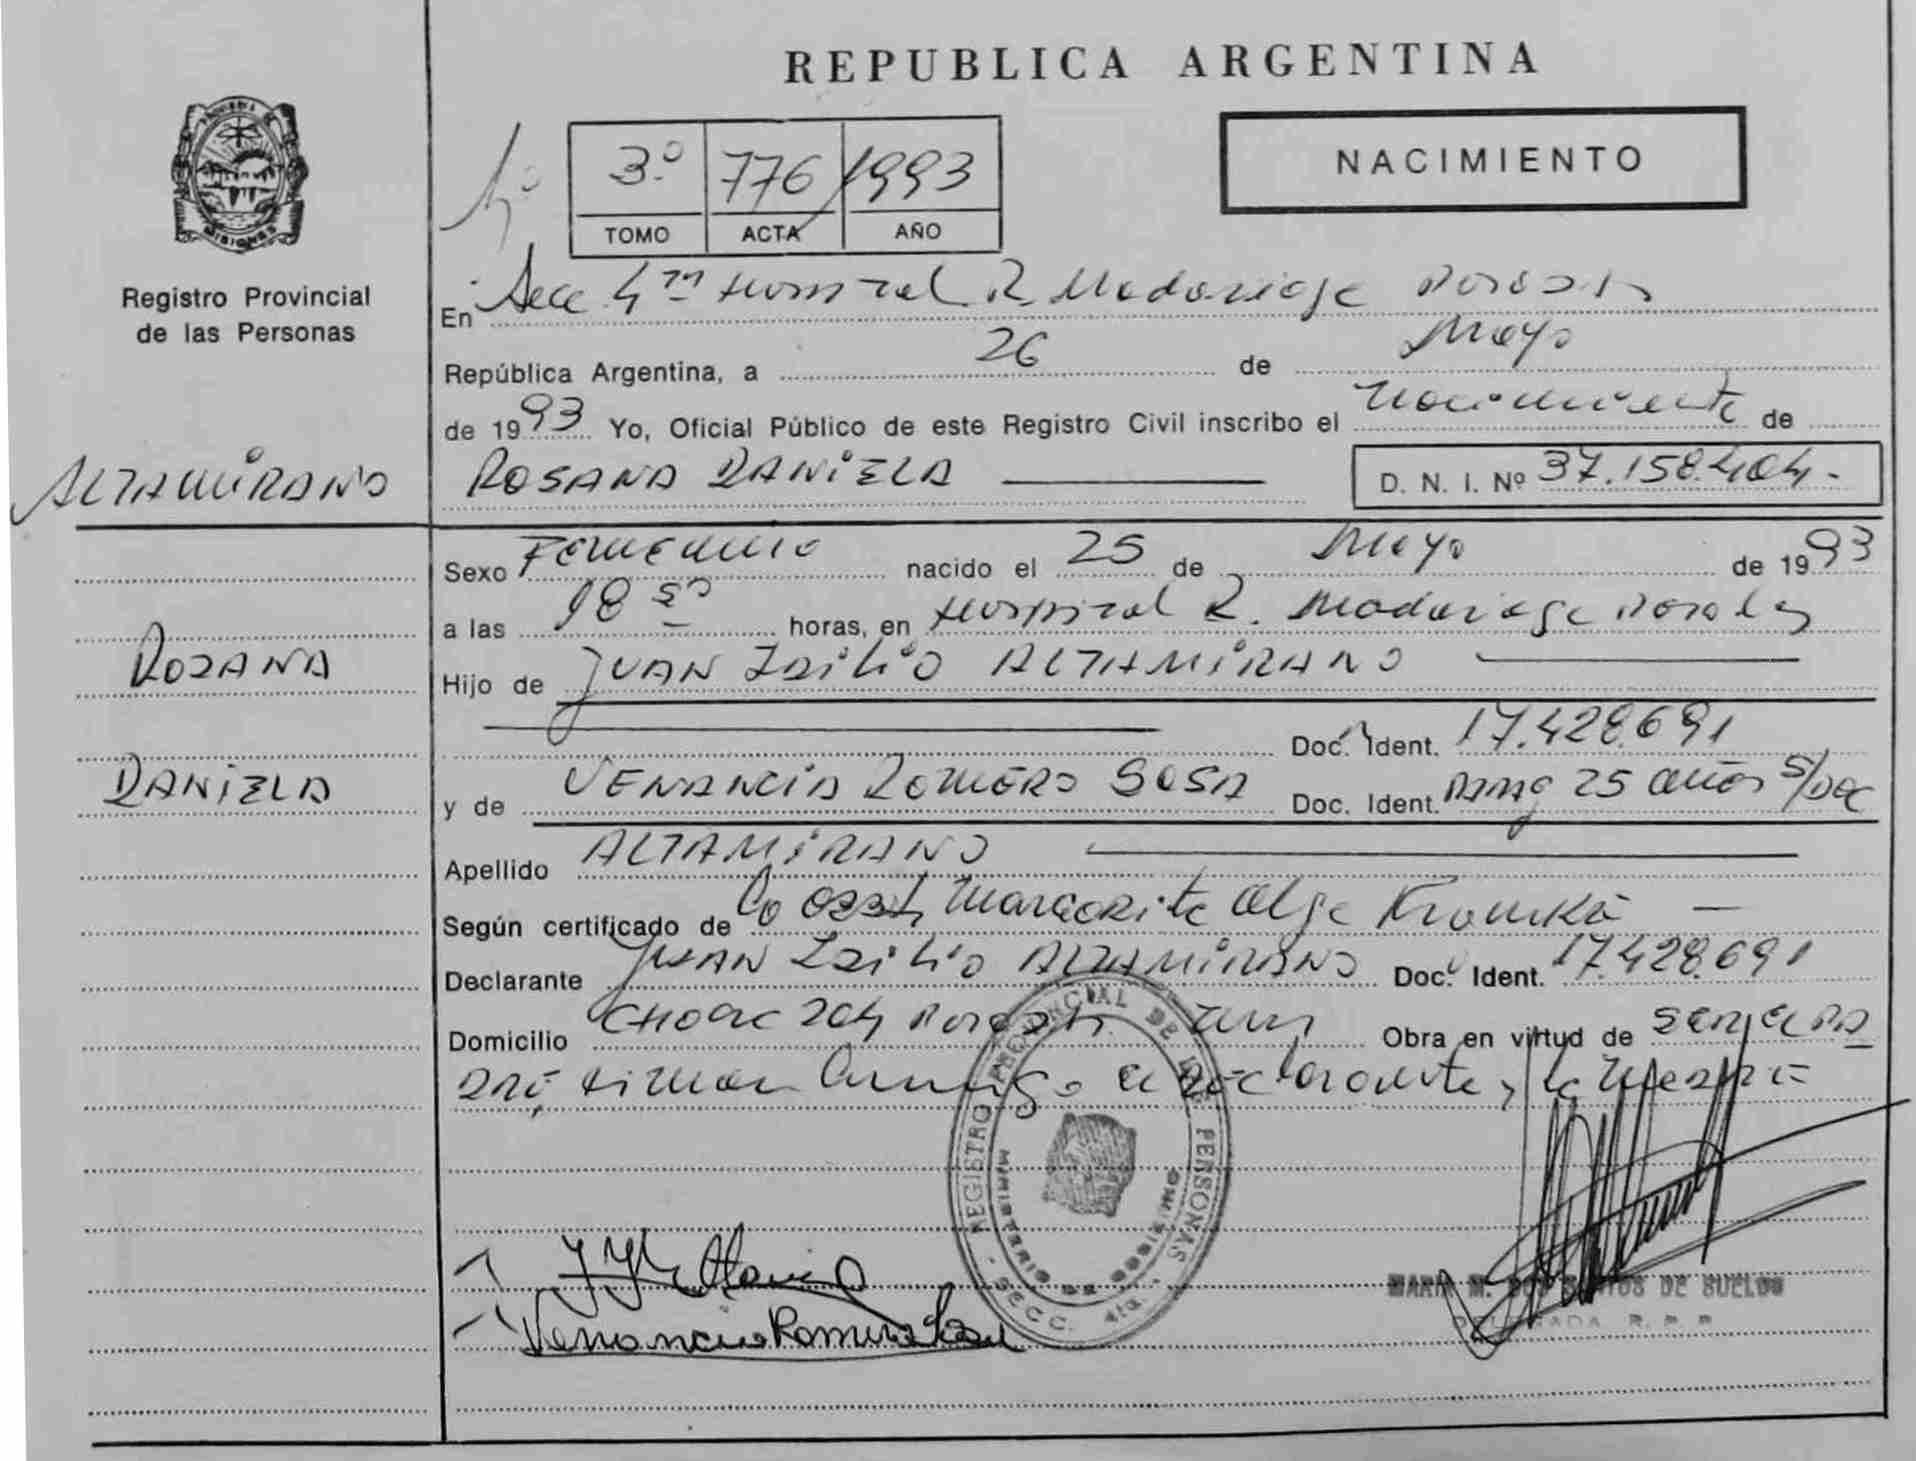 REPUBLICA ARGENTINA
MISIONES
Registro Provincial
de las Personas
Nº
3º 776 1993
TOMO ACTA AÑO
NACIMIENTO
En Secc 4ta Hospital R. Madariaga Posadas
República Argentina, a 26 de Mayo
de 1993 Yo, Oficial Público de este Registro Civil inscribo el nacimiento de
ALTAMIRANO
ROSANA DANIELA
D. N. I. Nº 37.158.404.-
Sexo Femenino nacido el 25 de Mayo de 1993
a las 18 50 horas, en Hospital R. Madariaga Posadas
ROSANA
Hijo de JUAN ALTAMIRANO
Doc. Ident. 17.428.691
DANIELA
y de VENANCIA ROMERO SOSA Doc. Ident. 25 años s/Doc
Apellido ALTAMIRANO
Según certificado de Margarita Olga
Declarante JUAN ALTAMIRANO Doc. Ident. 17.428.691
Domicilio 204 Posadas Obra en virtud de
firman conmigo el declarante y la madre
REGISTRO PROVINCIAL DE LAS PERSONAS
MINISTERIO DE GOBIERNO
SECC. 4ta.
Venancia Romero Sosa
MARIA M. DOS SANTOS DE SUELDO
DELEGADA R. P. P.